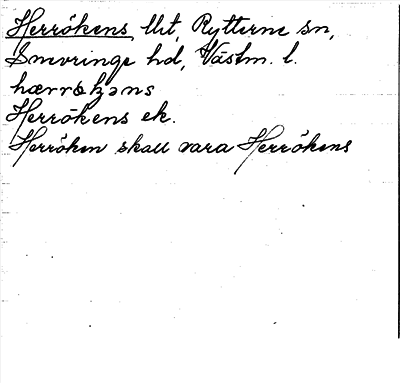 Herrökens llrt, Rytterne sn,
Snevringe hd, Västm. l.
Herrökens ek.
Herröken skall vara Herrökens